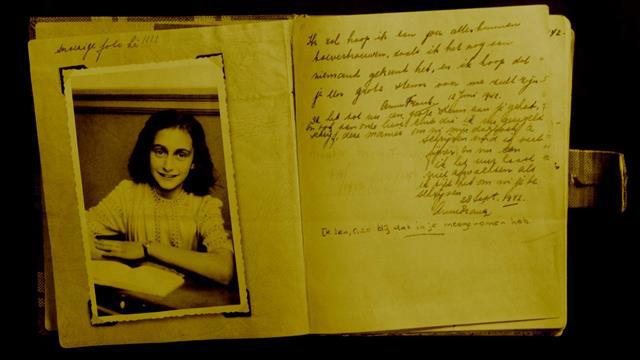 Snoezige foto hè!!!!
Ik zal hoop ik aan jou alles kunnen
toevertrouwen, zoals ik het nog aan
niemand gekund heb, en ik hoop dat
je een grote steun voor me zult zijn.
Anne Frank. 12 Juni 1942.
Ik heb tot nu een grote steun aan je gehad,
en ook aan onze lieve club die ik nu geregeld
schrijf, deze manier om in mijn dagboek te
schrijven vind ik veel
fijner en nu kan
ik het uur haast
niet afwachten als
ik tijd heb om in je te
schrijven.
28 Sept. 1942.
Anne Frank
Ik ben, O, zo blij dat ik je meegenomen heb.
42.